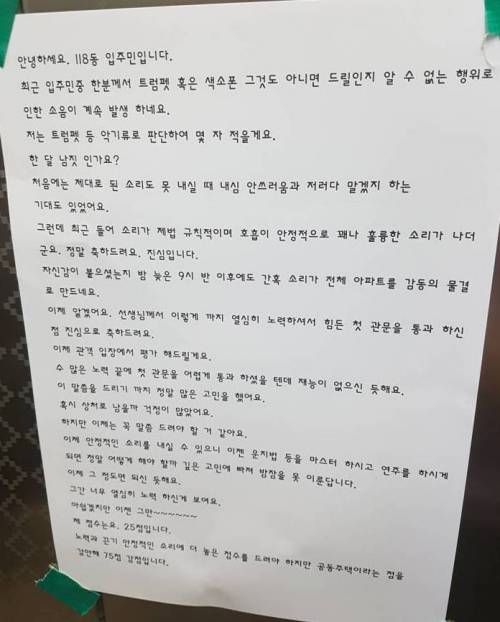 안녕하세요. 118동 입주민입니다.
최근 입주민중 한분께서 트럼펫 혹은 색소폰 그것도 아니면 드릴인지 알 수 없는 행위로
인한 소음이 계속 발생 하네요.
저는 트럼펫 등 악기류로 판단하여 몇 자 적을게요.
한 달 남짓 인가요?
처음에는 제대로 된 소리도 못 내실 때 내심 안쓰러움과 저러다 말겠지 하는
기대도 있었어요.
그런데 최근 들어 소리가 제법 규칙적이며 호흡이 안정적으로 꽤나 훌륭한 소리가 나더
군요. 정말 축하드려요. 진심입니다.
자신감이 붙으셨는지 밤 늦은 9시 반 이후에도 간혹 소리가 전체 아파트를 감동의 물결
로 만드네요.
이제 알겠어요. 선생님께서 이렇게 까지 열심히 노력하셔서 힘든 첫 관문을 통과 하신
점 진심으로 축하드려요.
이제 관객 입장에서 평가 해드릴게요.
수 많은 노력 끝에 첫 관문을 어렵게 통과 하셨을 텐데 재능이 없으신 듯해요.
이 말씀을 드리기 까지 정말 많은 고민을 했어요.
혹시 상처로 남을까 걱정이 많았어요.
하지만 이제는 꼭 말씀 드려야 할 거 같아요.
이제 안정적인 소리를 내실 수 있으니 이젠 운지법 등을 마스터 하시고 연주를 하시게
되면 정말 어떻게 해야 할까 깊은 고민에 빠져 밤잠을 못 이룬답니다.
이제 그 정도면 되신 듯해요.
그간 너무 열심히 노력 하신게 보여요.
아쉽겠지만 이젠 그만~~~~~~
제 점수는요. 25점입니다.
노력과 끈기 안정적인 소리에 더 높은 점수를 드려야 하지만 공동주택이라는 점을
감안해 75점 감점입니다.